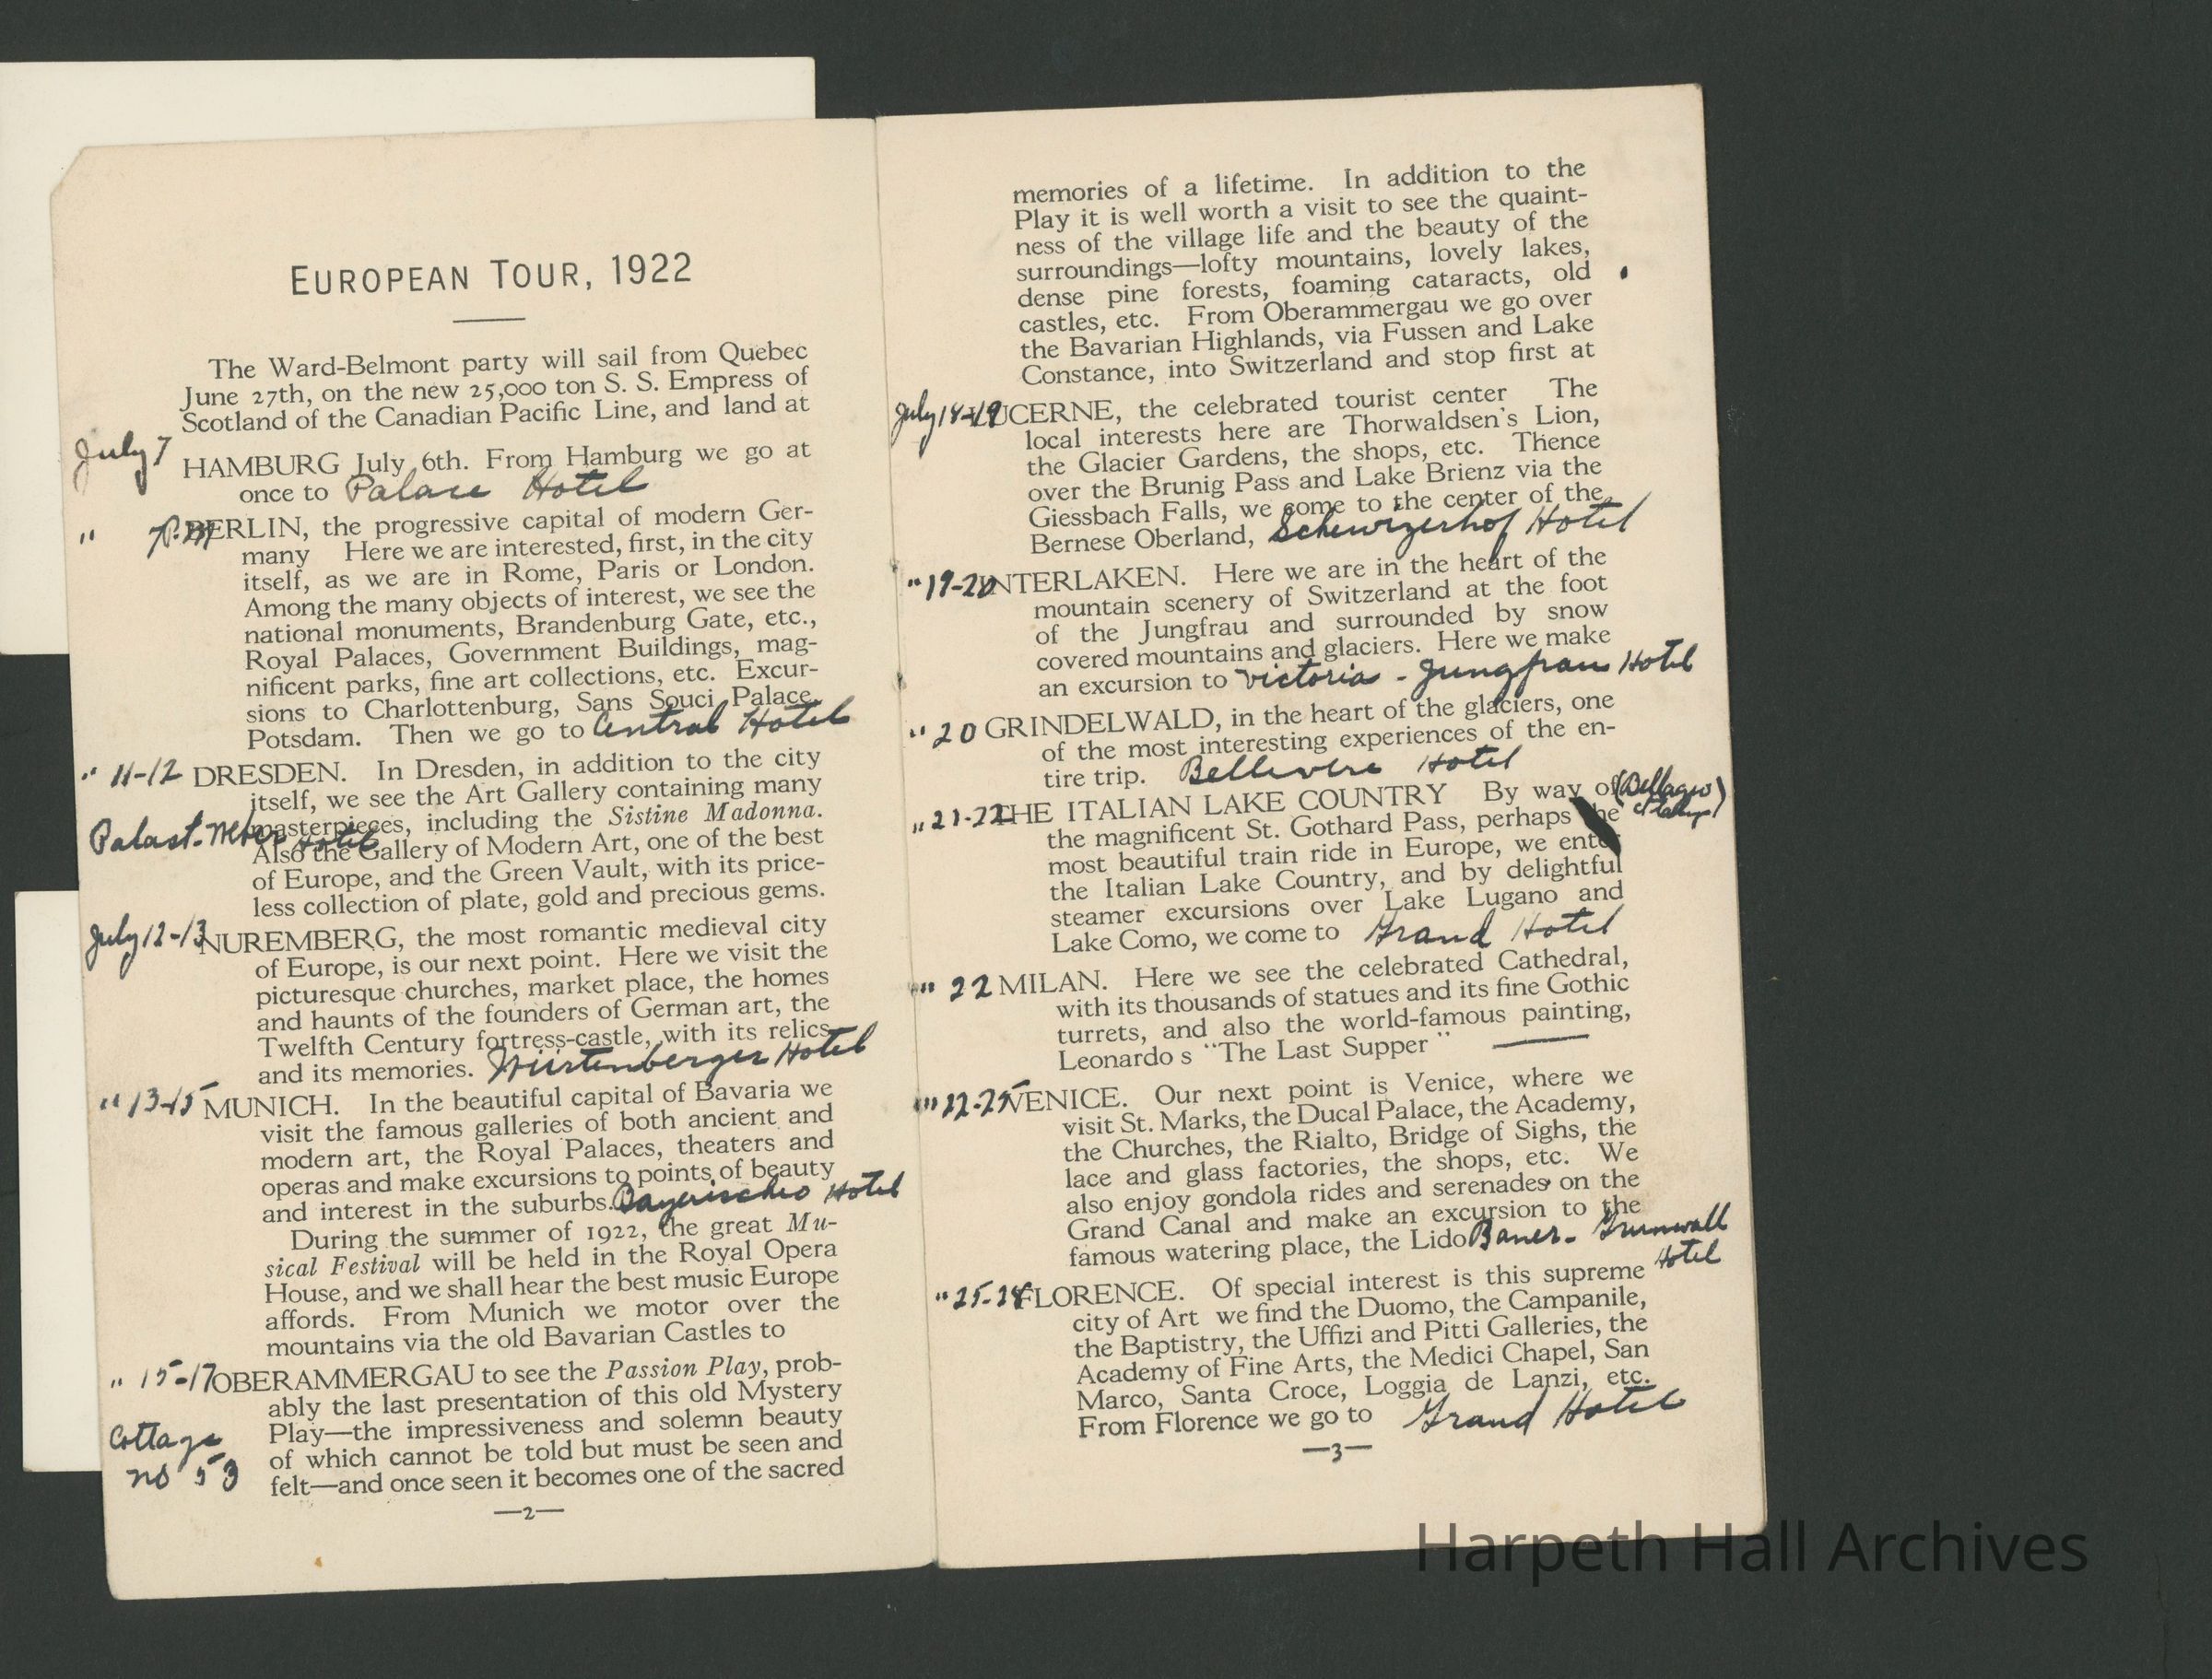 EUROPEAN TOUR, 1922
The Ward-Belmont party will sail from Quebec
June 27th, on the new 25,000 ton S. S. Empress of
Scotland of the Canadian Pacific Line, and land at
July 7
HAMBURG July 6th. From Hamburg we go at
once to Palace Hotel
" BERLIN, the progressive capital of modern Ger-
many Here we are interested, first, in the city
itself, as we are in Rome, Paris or London.
Among the many objects of interest, we see the
national monuments, Brandenburg Gate, etc.,
Royal Palaces, Government Buildings, mag-
nificent parks, fine art collections, etc. Excur-
sions to Charlottenburg, Sans Souci Palace,
Potsdam. Then we go to Central Hotel
" 11-12 DRESDEN. In Dresden, in addition to the city
itself, we see the Art Gallery containing many
masterpieces, including the Sistine Madonna.
Palast. Hotel
Also the Gallery of Modern Art, one of the best
of Europe, and the Green Vault, with its price-
less collection of plate, gold and precious gems.
July 12-13 NUREMBERG, the most romantic medieval city
of Europe, is our next point. Here we visit the
picturesque churches, market place, the homes
and haunts of the founders of German art, the
Twelfth Century fortress-castle, with its relics
and its memories. Würtenberger Hotel
" 13-15 MUNICH. In the beautiful capital of Bavaria we
visit the famous galleries of both ancient and
modern art, the Royal Palaces, theaters and
operas and make excursions to points of beauty
and interest in the suburbs. Hotel
During the summer of 1922, the great Mu-
sical Festival will be held in the Royal Opera
House, and we shall hear the best music Europe
affords. From Munich we motor over the
mountains via the old Bavarian Castles to
" 15-17 OBERAMMERGAU to see the Passion Play, prob-
ably the last presentation of this old Mystery
Play—the impressiveness and solemn beauty
of which cannot be told but must be seen and
felt—and once seen it becomes one of the sacred
Cottage
no 53
—2—
memories of a lifetime. In addition to the
Play it is well worth a visit to see the quaint-
ness of the village life and the beauty of the
surroundings—lofty mountains, lovely lakes,
dense pine forests, foaming cataracts, old
castles, etc. From Oberammergau we go over
the Bavarian Highlands, via Fussen and Lake
Constance, into Switzerland and stop first at
July 18-19 LUCERNE, the celebrated tourist center The
local interests here are Thorwaldsen's Lion,
the Glacier Gardens, the shops, etc. Thence
over the Brunig Pass and Lake Brienz via the
Giessbach Falls, we come to the center of the
Bernese Oberland, Schewizerhof Hotel
" 19-20 INTERLAKEN. Here we are in the heart of the
mountain scenery of Switzerland at the foot
of the Jungfrau and surrounded by snow
covered mountains and glaciers. Here we make
an excursion to Victoria - Jungfrau Hotel
" 20 GRINDELWALD, in the heart of the glaciers, one
of the most interesting experiences of the en-
tire trip. Hotel
" 21-22 THE ITALIAN LAKE COUNTRY By way of (Bellagio
the magnificent St. Gothard Pass, perhaps the
most beautiful train ride in Europe, we enter
the Italian Lake Country, and by delightful
steamer excursions over Lake Lugano and
Lake Como, we come to Grand Hotel
" 22 MILAN. Here we see the celebrated Cathedral,
with its thousands of statues and its fine Gothic
turrets, and also the world-famous painting,
Leonardo s "The Last Supper"
" 22-25 VENICE. Our next point is Venice, where we
visit St. Marks, the Ducal Palace, the Academy,
the Churches, the Rialto, Bridge of Sighs, the
lace and glass factories, the shops, etc. We
also enjoy gondola rides and serenades on the
Grand Canal and make an excursion to the
famous watering place, the Lido Bauer- Grunwall
Hotel
" 25-28 FLORENCE. Of special interest is this supreme
city of Art we find the Duomo, the Campanile,
the Baptistry, the Uffizi and Pitti Galleries, the
Academy of Fine Arts, the Medici Chapel, San
Marco, Santa Croce, Loggia de Lanzi, etc.
From Florence we go to Grand Hotel
—3—
Harpeth Hall Archives